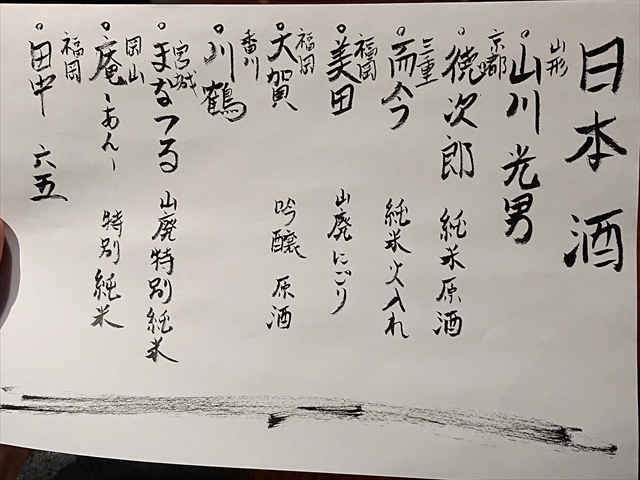 日本酒
山形
山川光男
京都
徳次郎 純米原酒
三重
而今 純米火入れ
福岡
美田 山廃にごり
福岡
天賀 吟醸 原酒
香川
川鶴
宮城
まなつる 山廃特別純米
岡山
庵-あん- 特別純米
福岡
田中 六五